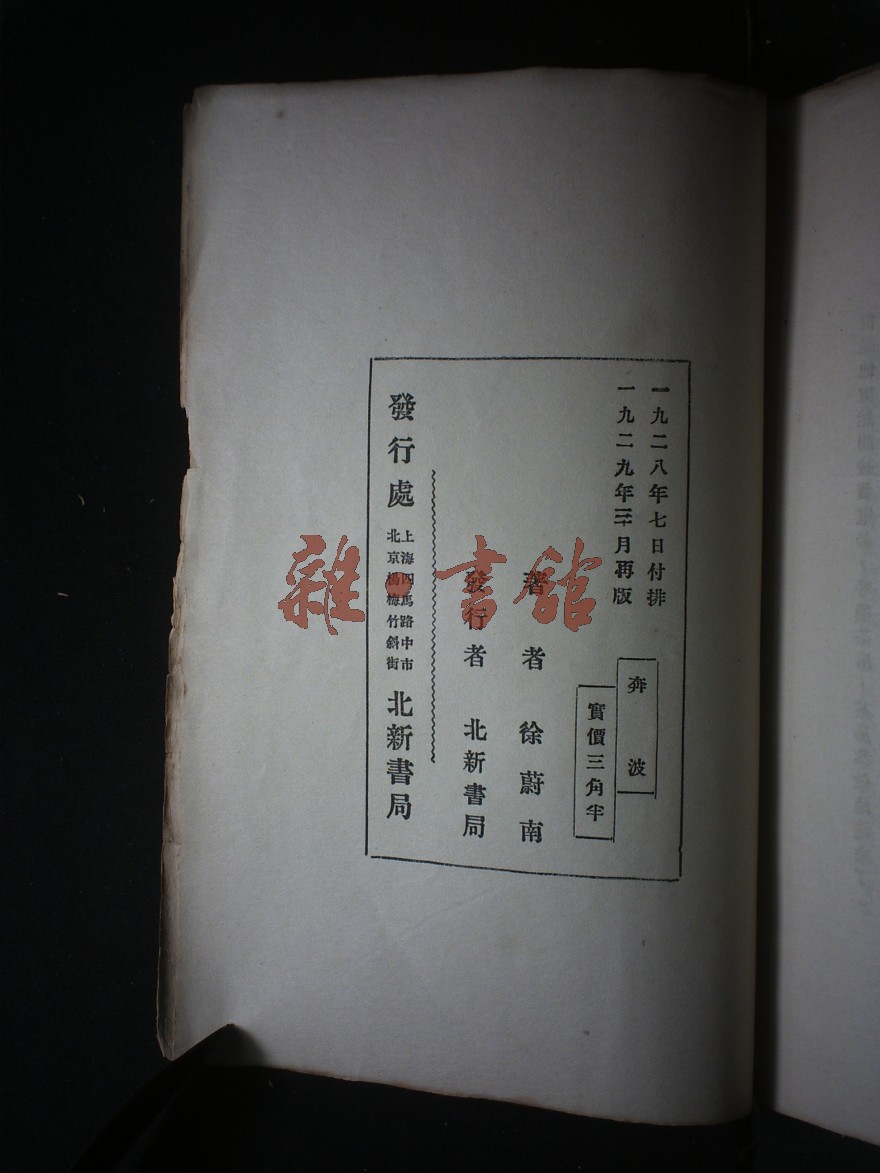 一九二八年七日付排
一九二九年三月再版
奔波
實價三角半
著者 徐蔚南
發行者 北新書局
發行處
上海四馬路中市
北京楊梅竹斜街
北新書局
雜·書館